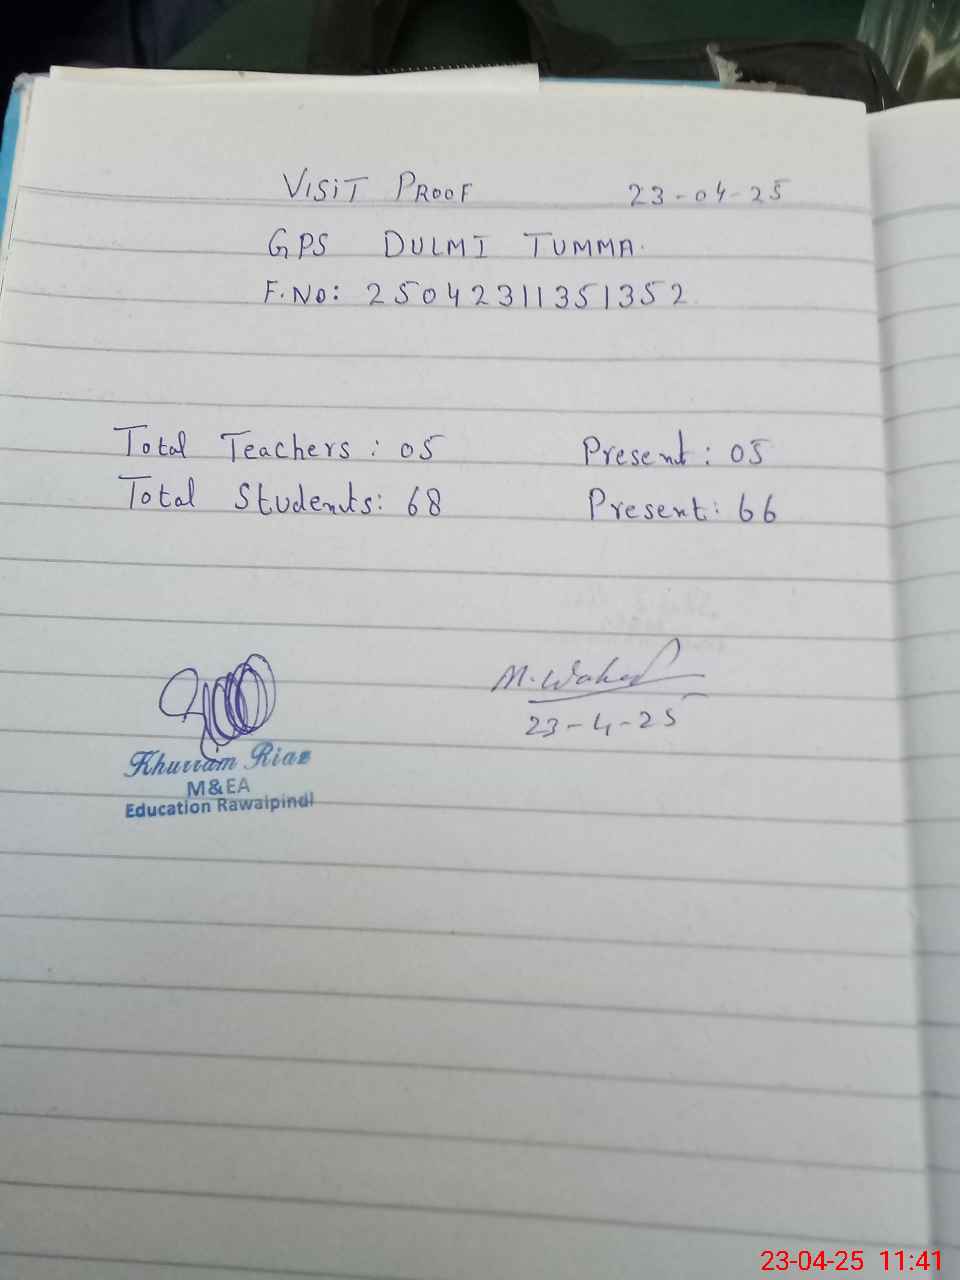 VISIT PROOF 23-04-25
GPS DULMI TUMMA.
F.No: 25042311351352
Total Teachers: 05 Present: 05
Total Students: 68 Present: 66
M. Waheed
23-4-25
Khurram Riaz
M&EA
Education Rawalpindi
23-04-25 11:41